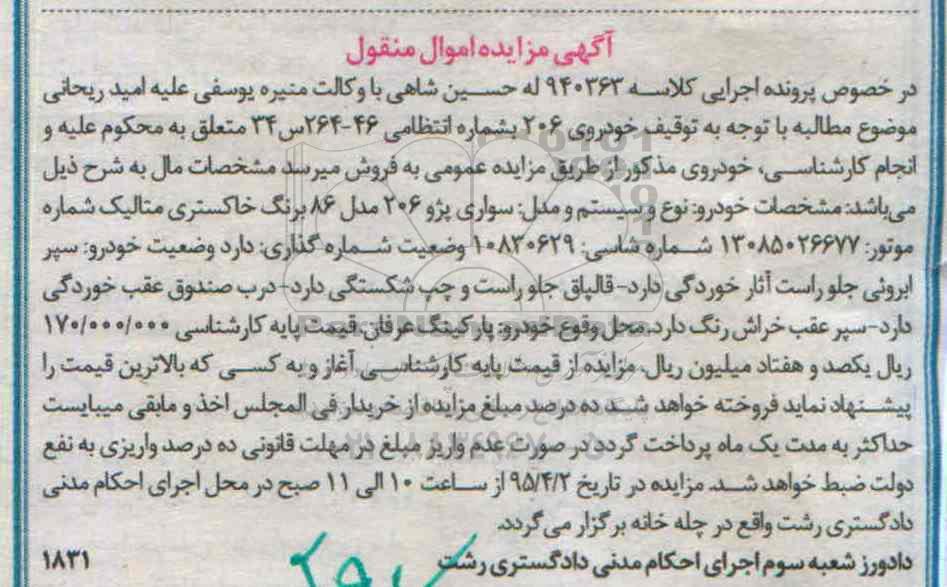 آگهی مزایده اموال منقول
در خصوص پرونده اجرایی کلاسه ۹۴۰۳۶۳ له حسین شاهی با وکالت منیره یوسفی علیه امید ریحانی
موضوع مطالبه با توجه به توقیف خودروی ۲۰۶ بشماره انتظامی ۴۶-۲۶۴س۳۴ متعلق به محکوم علیه و
انجام کارشناسی، خودروی مذکور از طریق مزایده عمومی به فروش میرسد مشخصات مال به شرح ذیل
می‌باشد: مشخصات خودرو: نوع و سیستم و مدل: سواری پژو ۲۰۶ مدل ۸۶ برنگ خاکستری متالیک شماره
موتور: ۱۳۰۸۵۰۲۶۶۷۷ شماره شاسی: ۱۰۸۳۰۶۲۹ وضعیت شماره گذاری: دارد وضعیت خودرو: سپر
ابروئی جلو راست آثار خوردگی دارد- قالپاق جلو راست و چپ شکستگی دارد- درب صندوق عقب خوردگی
دارد- سپر عقب خراش رنگ دارد. محل وقوع خودرو: پارکینگ عرفان. قیمت پایه کارشناسی ۱۷۰/۰۰۰/۰۰۰
ریال یکصد و هفتاد میلیون ریال. مزایده از قیمت پایه کارشناسی آغاز و به کسی که بالاترین قیمت را
پیشنهاد نماید فروخته خواهد شد ده درصد مبلغ مزایده از خریدار فی المجلس اخذ و مابقی میبایست
حداکثر به مدت یک ماه پرداخت گردد در صورت عدم واریز مبلغ در مهلت قانونی ده درصد واریزی به نفع
دولت ضبط خواهد شد. مزایده در تاریخ ۹۵/۴/۲ از ساعت ۱۰ الی ۱۱ صبح در محل اجرای احکام مدنی
دادگستری رشت واقع در چله خانه برگزار می گردد.
دادورز شعبه سوم اجرای احکام مدنی دادگستری رشت ۱۸۳۱